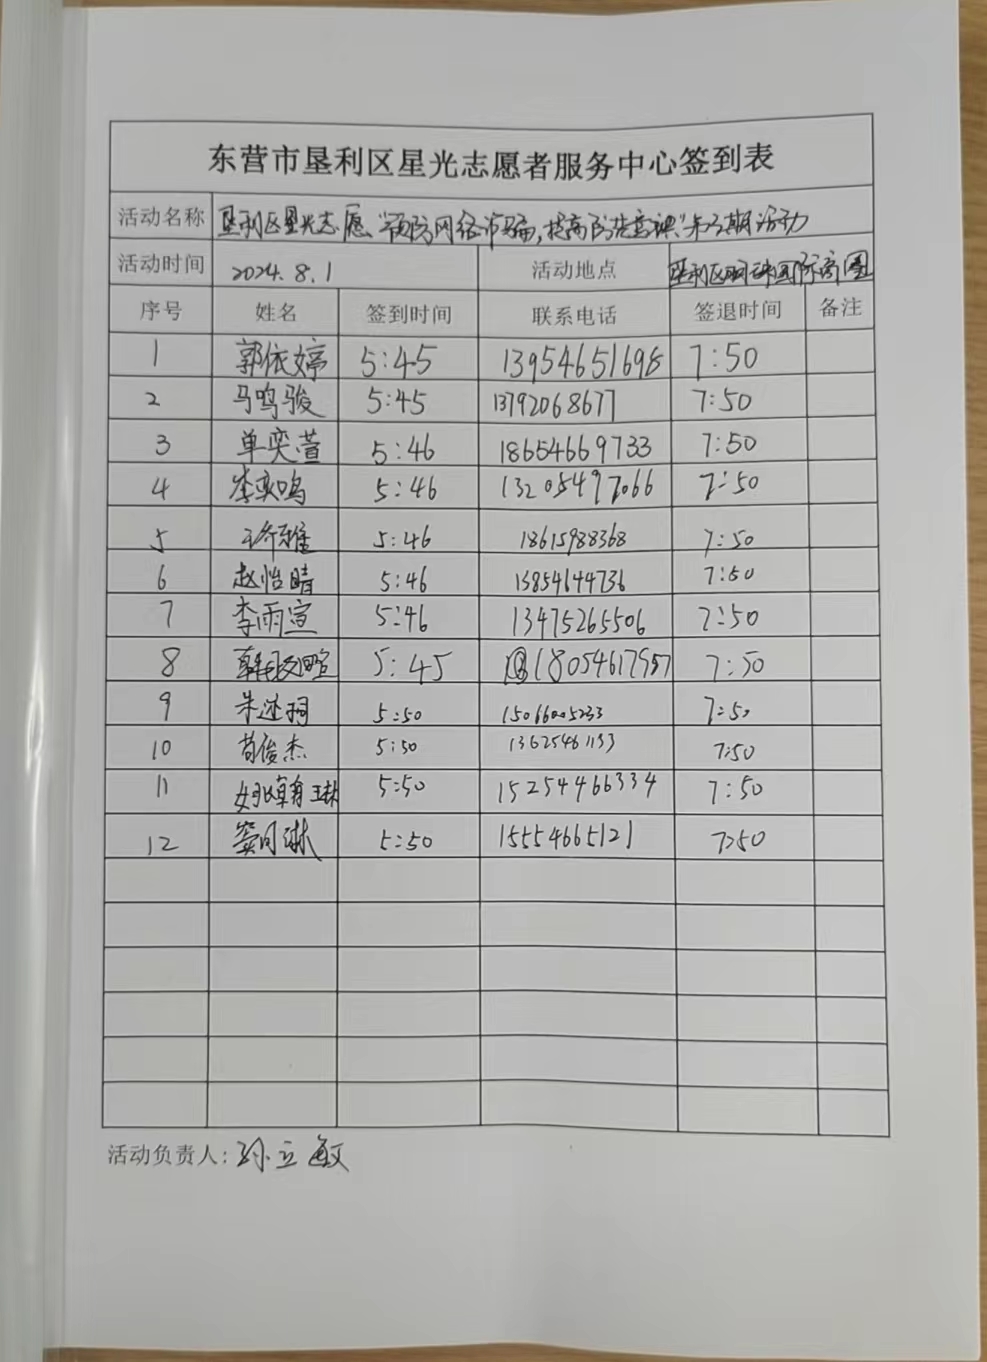 东营市垦利区星光志愿者服务中心签到表
活动名称 垦利区星光志愿"预防网络诈骗,提高防范意识"第3期活动
活动时间 2024.8.1 活动地点 垦利区明珠国际商圈
序号 姓名 签到时间 联系电话 签退时间 备注
1 郭依婷 5:45 13954651698 7:50
2 马鸣骏 5:45 13792068677 7:50
3 单奕萱 5:46 18654669733 7:50
4 李奕鸣 5:46 13205497066 7:50
5 5:46 18615988368 7:50
6 赵怡晴 5:46 13854644736 7:50
7 李雨宣 5:46 13475265506 7:50
8 5:45 18054617957 7:50
9 5:50 7:50
10 苟俊杰 5:50 7:50
11 5:50 15254466334 7:50
12 窦月琳 5:50 15554665121 7:50
活动负责人:孙立敏